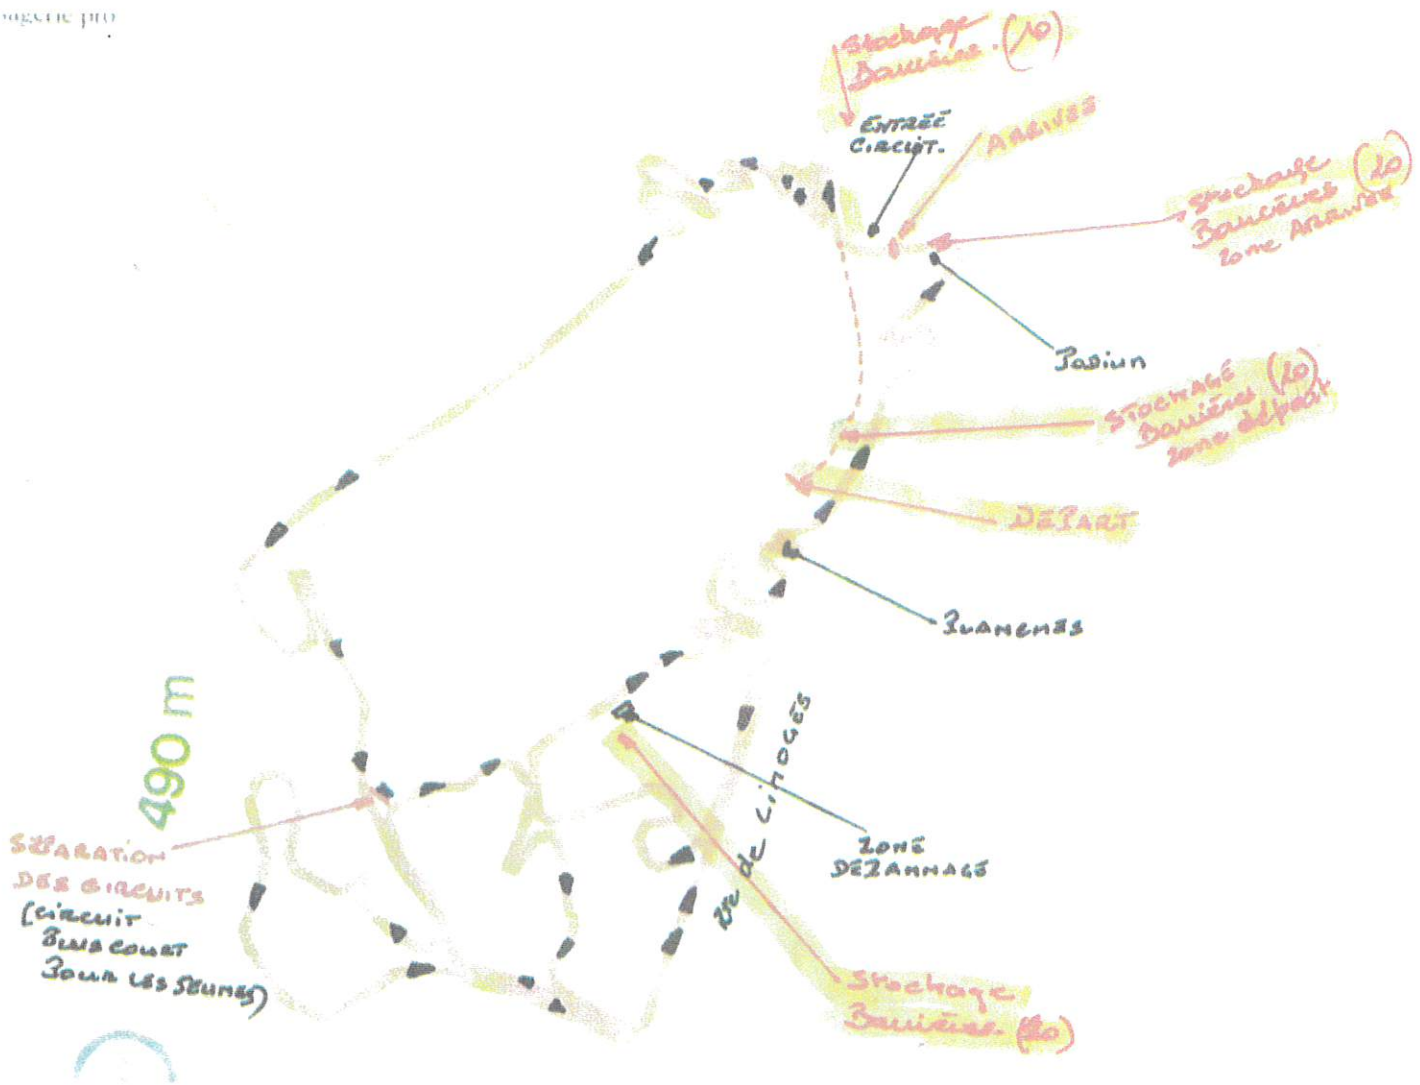 Stockage
Barrières. (10)
ENTRÉE
CIRCUIT.
ARRIVÉE
Stockage (20)
Barrières
zone ARRIVÉE
Podium
STOCKAGE (20)
Barrières
zone départ
DÉPART
PLANCHES
490 m
rue de LIMOGES
ZONE
DEPANNAGE
SÉPARATION
DES CIRCUITS
(CIRCUIT
PLUS COURT
POUR LES JEUNES)
Stockage
Barrières. (20)